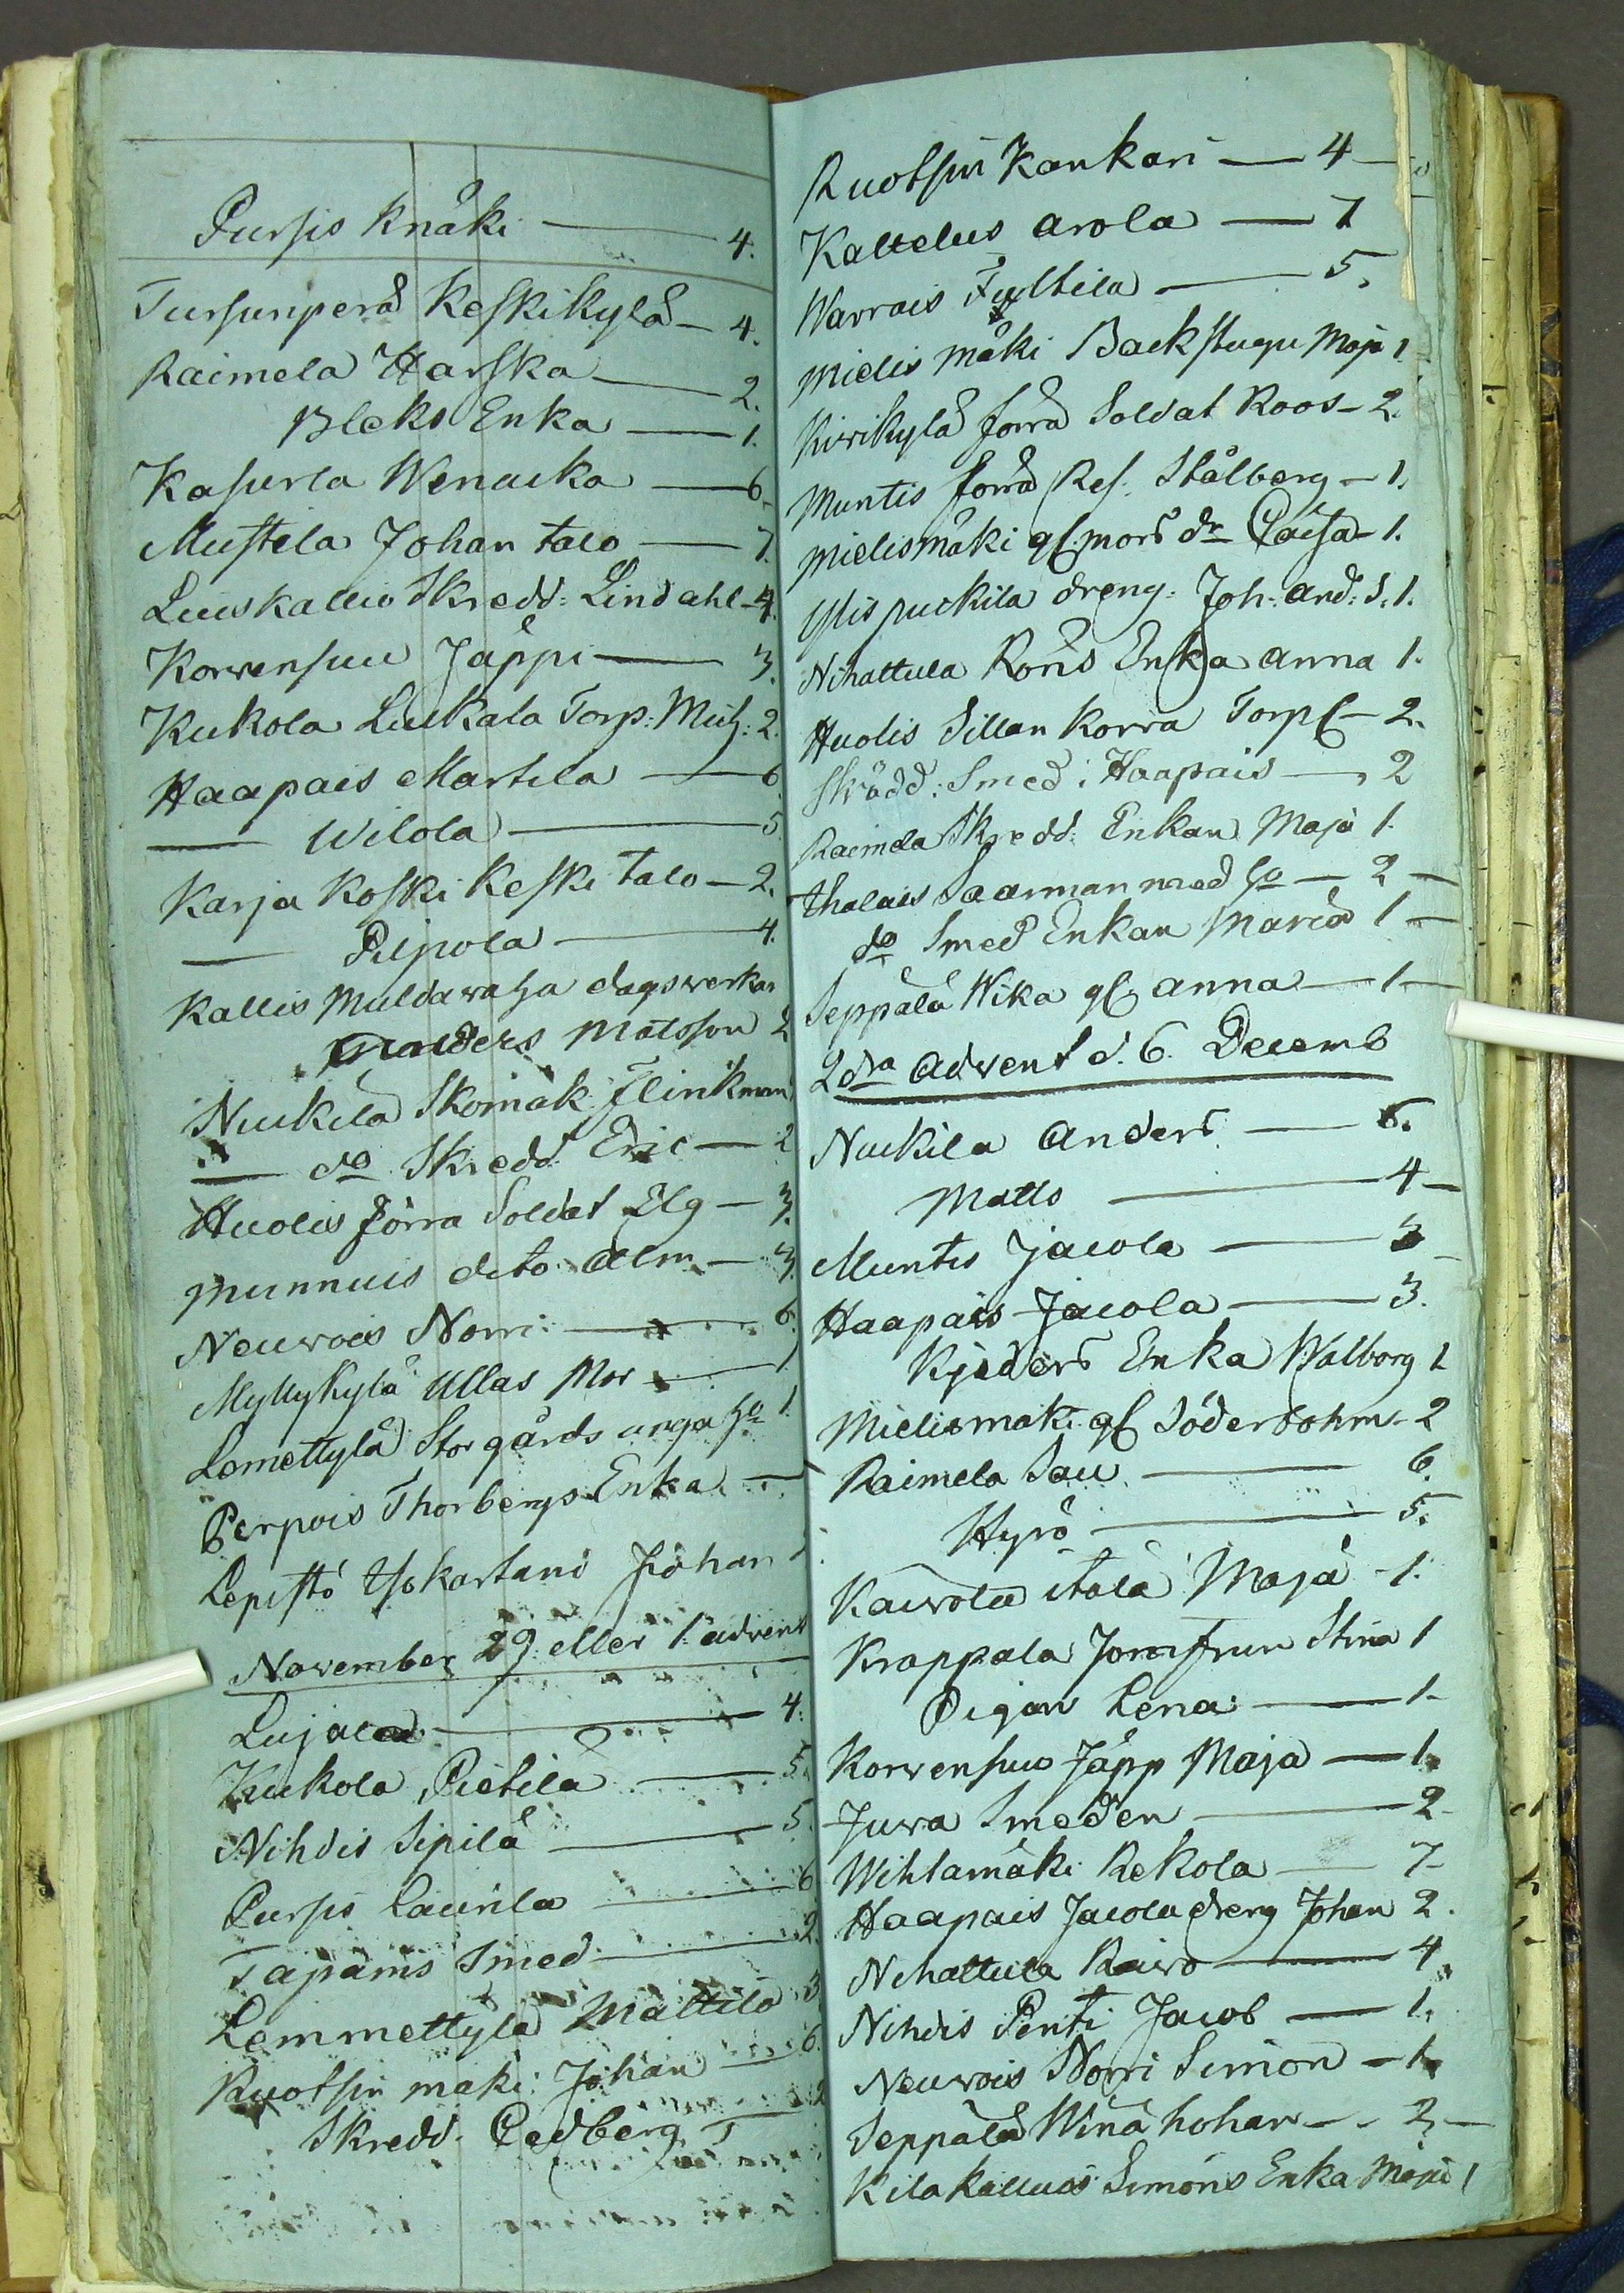 Pursis Knäki — 4.
Tursunperä Keskikylä — 4.
Raimela Harska — 2.
Bleks Enka — 1.
Kasurla Wenaska — 6
Mustela Johan talo — 7.
Luuskallio Skredd: Lindahl — 4.
Korwensuu Jäppi — 3.
Kukola Luukala Torp: 2.
Haapais Martila — 6
— Wilola — 5
Karja Koski Keski talo — 2.
— Pilpola — 4.
Kallis Muldawaha dagswerkar
Anders Matsson 2
Nuukila Skomak: Flinkman
— do Skredd Eric — 2
Huolis förra Soldat Elg — 3.
Munnuis dito Alm — 3.
Neuwois Norri — 6.
Myllykylä Ullas Mor — 1
Lemettylä Storgårds unga ha 1.
Perpois Thorbergs Enka —
Lepistö Yokartano Johan
November 29 eller 1 advent
Lujala — 4.
Kukola Pietilä — 5.
Nihdis Sipilä — 5.
Pursis Laurila — 6
Tapanis Smed — 2.
Lemmettylä Mattila 3
Ruotsin mäki Johan — 6.
Skredd. Pedberg — 2
Ruotsin Kankari — 4 —
Kaltelus Arola — 7
Warrais Tultila — 5.
Mielis mäki Backstugu Maja 1
Kirikylä förra Soldat Roos — 2.
Muntis förra Res. Stålberg — 1.
Mielismäki gl. mors dr Caisa — 1.
Ylis puukila dreng. Joh: And: S. 1.
Nihattula Rons Enka Anna 1.
Huolis Sillan korwa Torp — 2.
Skrädd: Smed i Haapais — 2
Raimela Skredd: Enkan Maja 1.
Uhalais Saarman med ha — 2 —
do Smed Enkan Maria 1 —
Seppälä Wika gl Anna — 1 —
2dra Advent d. 6. Decemb
Nuukila Anders — 5.
Matts — 4 —
Muntis Jacola — 3 —
Haapais Jacola — 3.
Kjeders Enka Walborg 1
Mielismäki gl Söderbohm — 2
Raimela Sau — 6.
Hyrö — 5.
Kawola itala Maja — 1.
Krappala Jomfrun Stina 1
Pigan Lena — 1 —
Korwensuu Jäpp Maja — 1.
Juwa Smeden — 2 —
Wihlamäki Rekola — 7 —
Haapais Jacola dreng Johan 2.
Nihattula Kaiwo — 4.
Nihdis Penti Jacob — 1.
Neuwois Norri Simon — 1.
Seppälä Winä hohan — 2 —
Kilakallios Simons Enka Maja 1